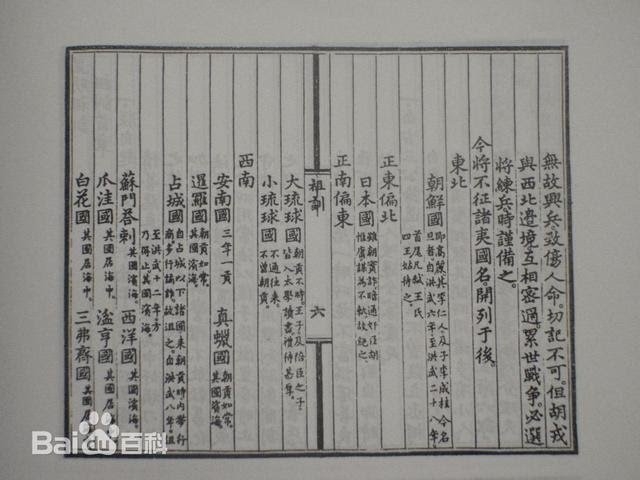 無故興兵致傷人命切記不可但胡戎
與西北邊境互相密邇累世戰争必選
將練兵時謹備之
今將不征諸夷國名開列于後
東北
朝鮮國 即高麗其李仁人及子李成桂今名
旦者自洪武六年至洪武二十八年
首尾凡弑王氏
四王姑待之
正東偏北
日本國 雖朝貢詐暗通奸臣胡
惟庸謀為不軌故絶之
正南偏東
祖訓
六
大琉球國 朝貢不時王子及陪臣之子
皆入太學讀書禮待甚厚
小琉球國 不通往來
不曾朝貢
西南
安南國 三年一貢 真蠟國 朝貢如常
其國濱海
暹羅國 朝貢如常
其國濱海
占城國 自占城以下諸國來朝貢時内帶行
商多行譎詐故沮之自洪武八年沮
至洪武十二年方
乃得止其國濱海
蘇門荅剌 其國濱海 西洋國 其國濱海
爪洼國 其國居海中 湓亨國 其國居海中
白花國 其國居海中 三弗齊國 其國居
Baidu百科